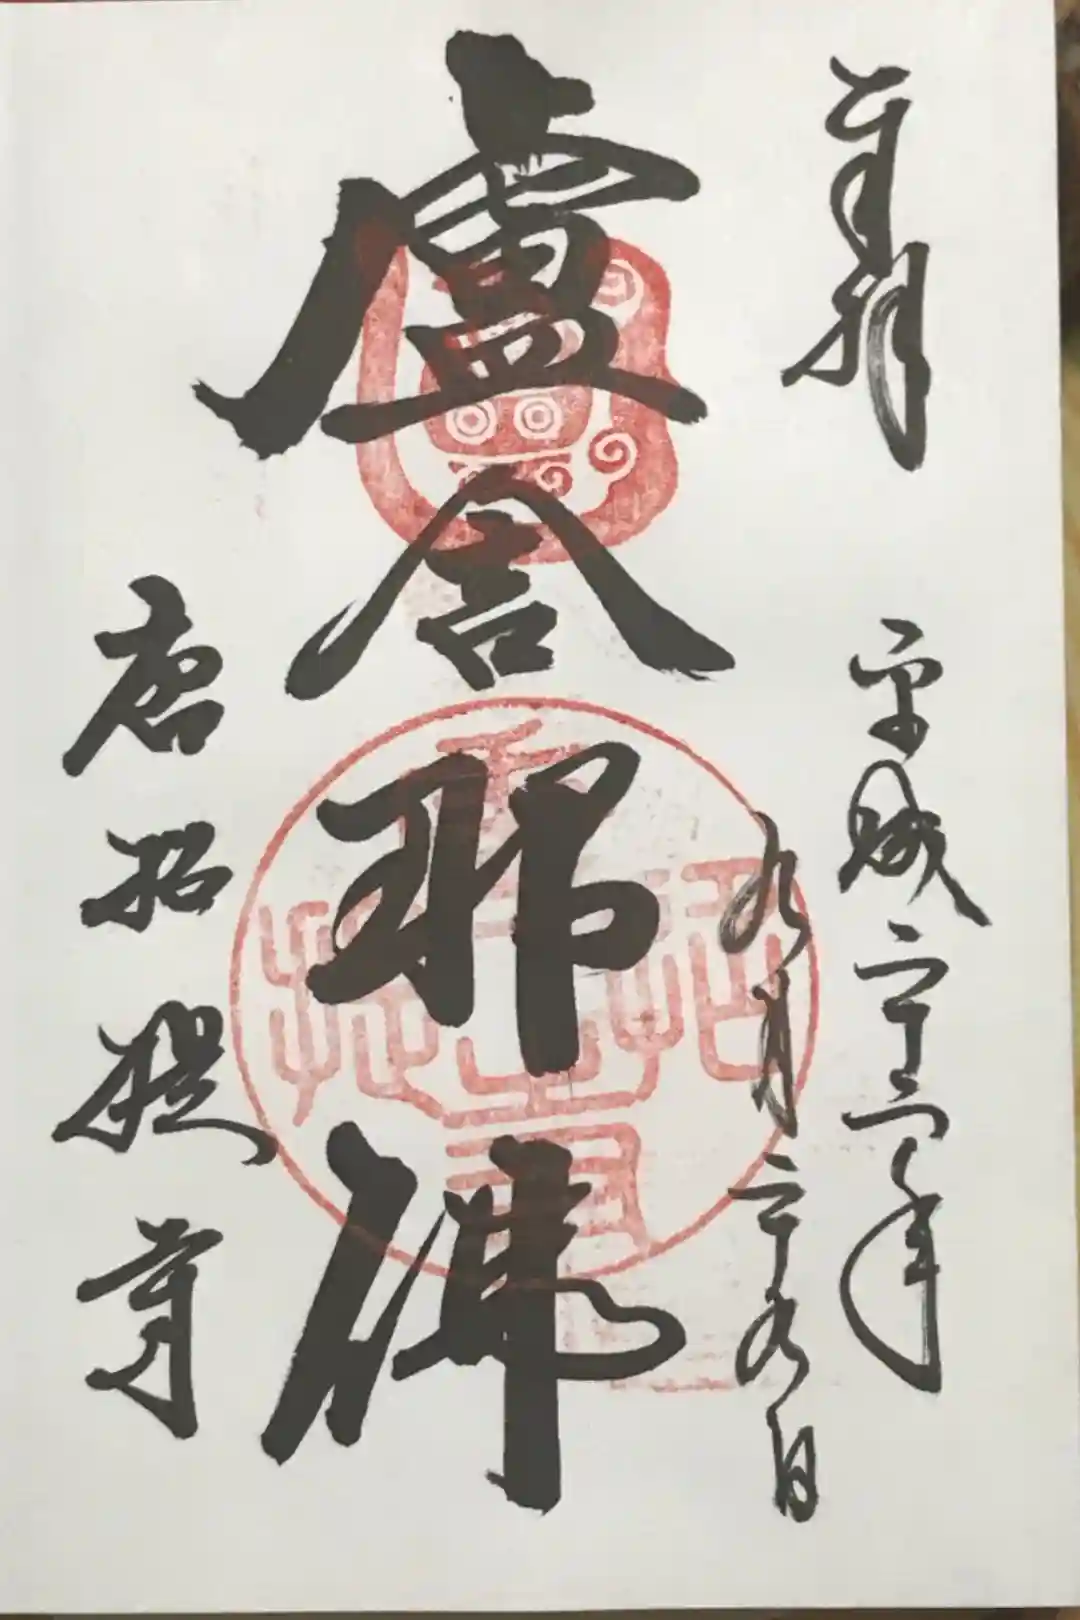 奉拝
平成二十二年
九月二十九日
盧舎那佛
唐招提寺